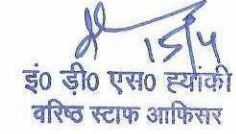 15/4
इं0 डी0 एस0 ह्यांकी
वरिष्ठ स्टाफ आफिसर